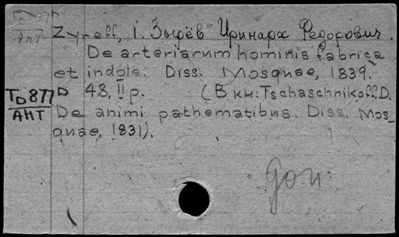 Zyreff, i. Зырёв Иринарх Федорович.
De arteriarum hominis fabrica
et indole. Diss. Mosquae, 1839.
TD877
АНТ
D 48, II p. (В кн: Tschaschnikoff. D.
De animi pathematibus. Diss. Mos-
quae, 1831).